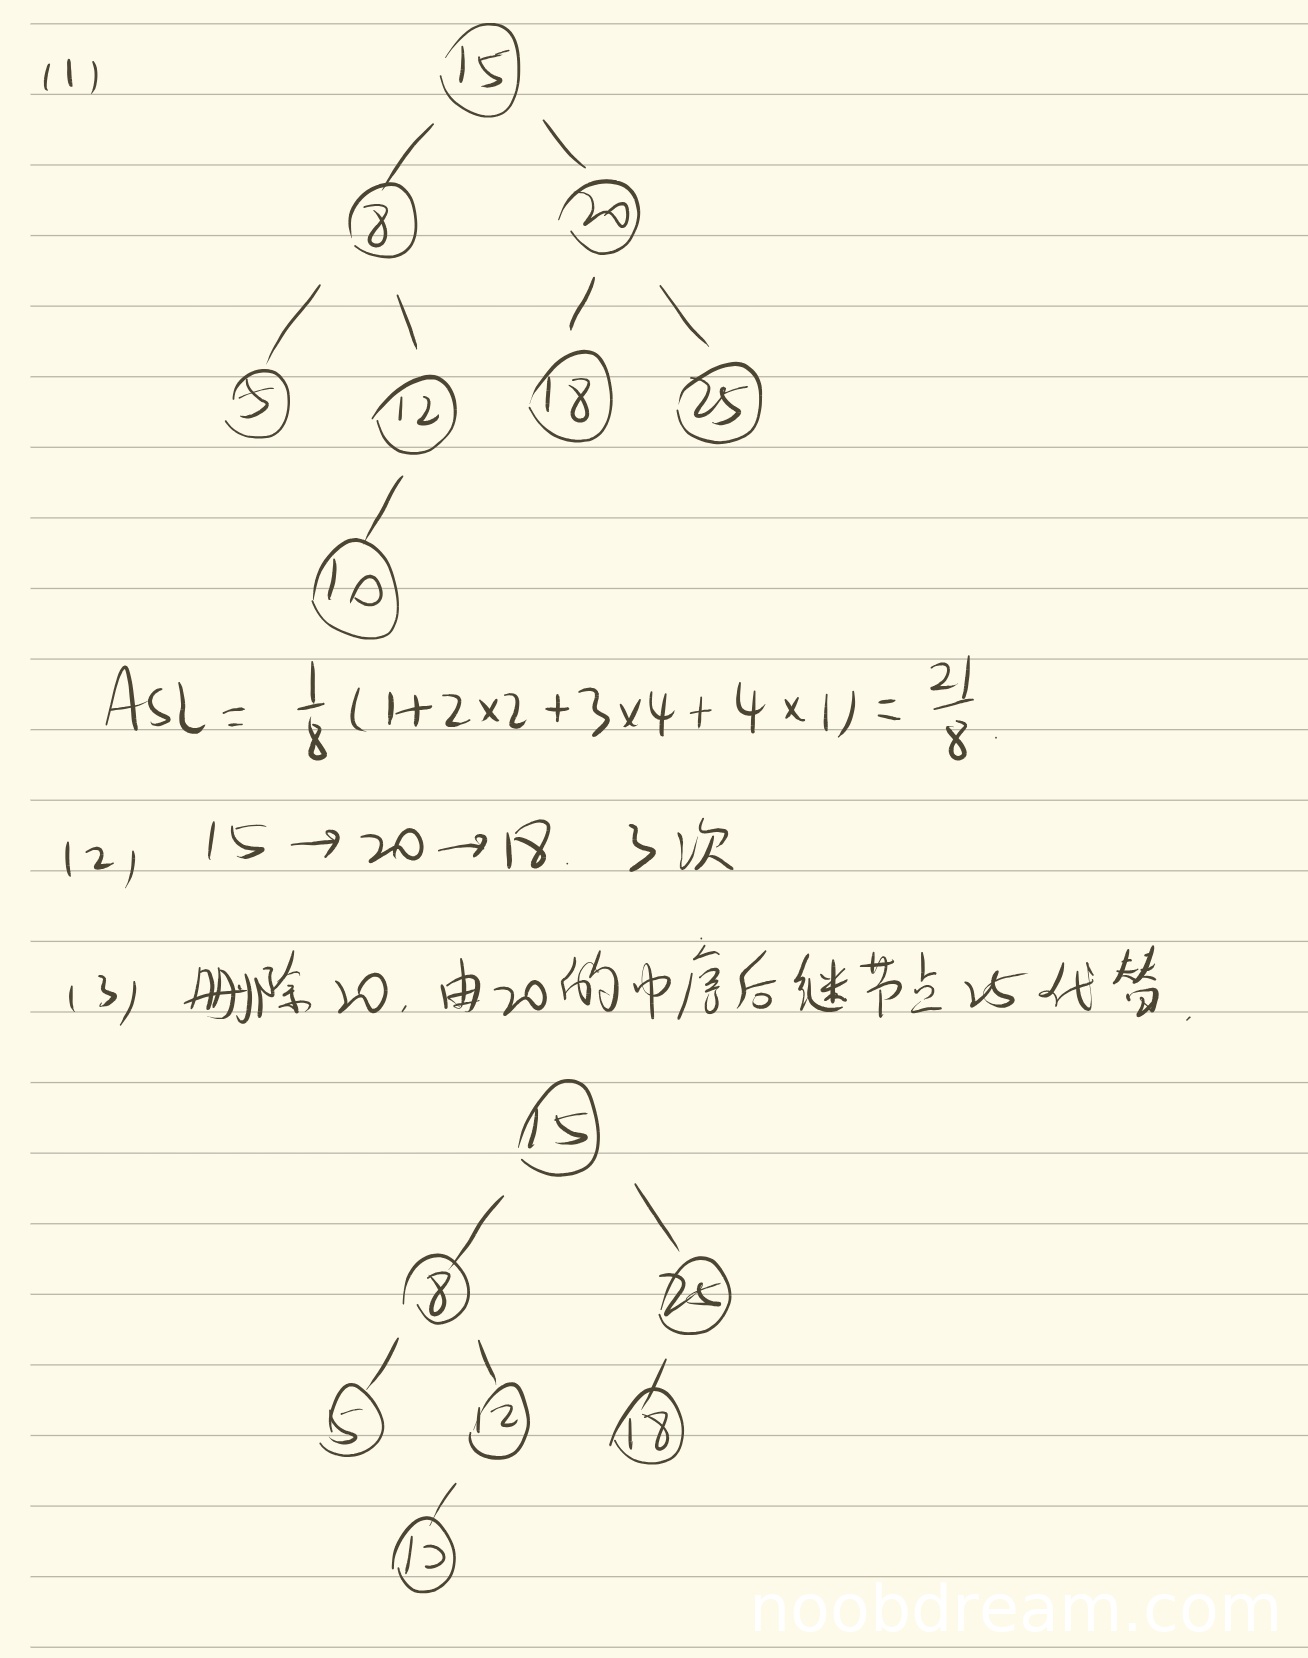 (1)
15
8 20
5 12 18 25
10
ASL = 1/8 (1+2×2+3×4+4×1) = 21/8.
(2) 15→20→18. 3次
(3) 删除20, 由20的中序后继节点25代替.
15
8 25
5 12 18
10
noobdream.com